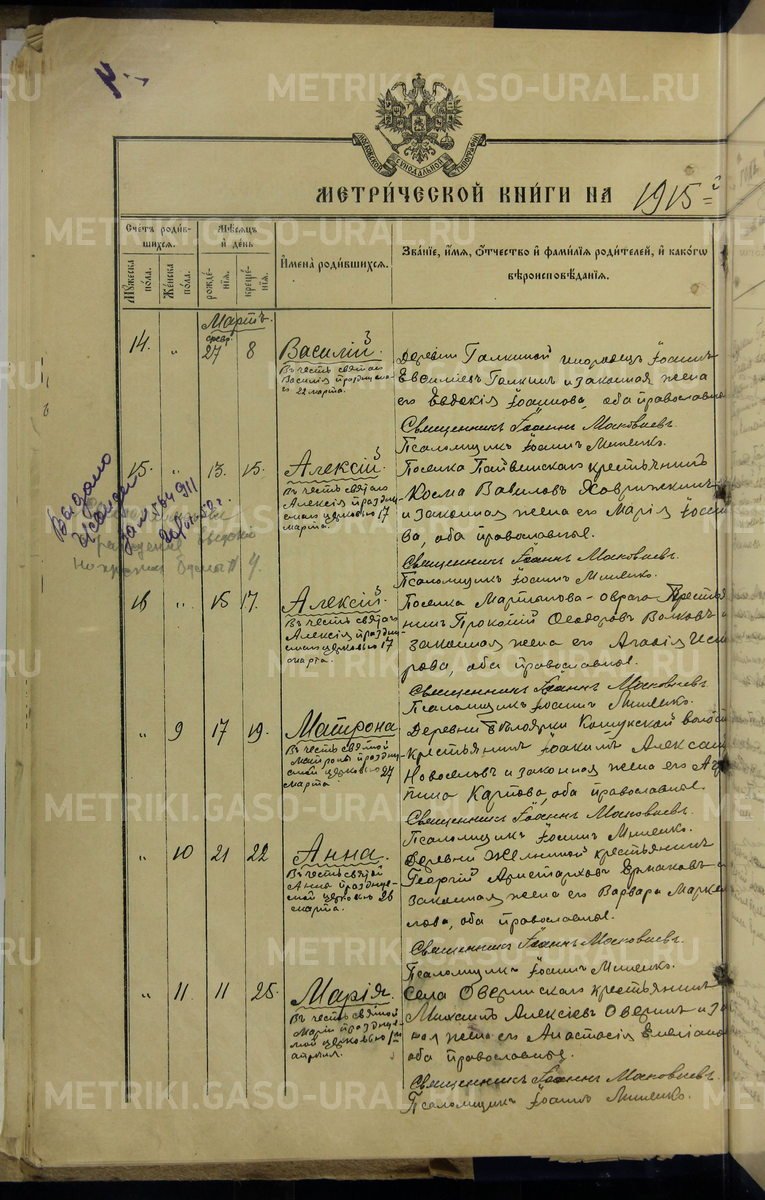 METRIKI.GASO-URAL.RU
МОСКОВСКОЙ СѴНОДАЛЬНОЙ ТИПОГРАФІИ
МЕТРИ́ЧЕСКОЙ КНИ́ГИ НА 1915й
Счетъ роди́вшихся.
Му́жеска по́ла.
Же́нска по́ла.
Мѣ́сяцъ и҆ де́нь
рожде́нія.
креще́нія.
И҆мена̀ роди́вшихся.
Зва́ніе, и҆́мя, ѻ҆́тчество и҆ фами́лія роди́телей, и҆ како́гѡ
вѣроисповѣ́данія.
Мартъ.
14. " февр. 27 8 Василій.
Въ честь святаго
Василія празднуема-
го 22 марта.
Деревни Галкиной инородецъ Іоаннъ
Евфиміевъ Галкинъ и законная жена
его Евдокія Іоаннова, оба православные
Священникъ Іоаннъ Маковѣевъ.
Псаломщикъ Іоаннъ Миненко.
15. " 13. 15. Алексій.
Въ честь святаго
Алексія праздну-
емаго церковью 17
марта.
Поселка крестьянинъ
Косма Вавиловъ
и законная жена его Марія
ва, оба православные.
Священникъ Іоаннъ Маковѣевъ.
Псаломщикъ Іоаннъ Миненко.
Выдано
16 " 15 17. Алексій.
Въ честь святаго
Алексія праздну-
емаго церковью 17
марта.
Поселка Мартынова-оврага кресть
нинъ Прокопій Ѳеодоровъ Волковъ и
законная жена его Агафія
рова, оба православные.
Священникъ Іоаннъ Маковѣевъ.
Псаломщикъ Іоаннъ Миненко.
" 9 17 19. Матрона
Въ честь святой
Матроны праздну-
емой церковью 27
марта.
Деревни Кошукской волости
крестьянинъ Іоакимъ
Новоселовъ и законная жена его Аг
пина Карпова, оба православные.
Священникъ Іоаннъ Маковѣевъ.
Псаломщикъ Іоаннъ Миненко.
" 10 21 22 Анна.
Въ честь святой
Анны празднуе-
мой церковью 26
марта.
Деревни крестьянинъ
Георгій Аристарховъ Ермаковъ и
законная жена его Варвара Марке
лова, оба православные.
Священникъ Іоаннъ Маковѣевъ.
Псаломщикъ Іоаннъ Миненко.
" 11 11 25. Марія.
Въ честь святой
Маріи празднуе-
мой церковью 1го
апрѣля.
Села Оверинскаго крестьянинъ
Михаилъ Алексіевъ Оверинъ и за
ная жена его Анастасія
оба православные.
Священникъ Іоаннъ Маковѣевъ.
Псаломщикъ Іоаннъ Миненко.